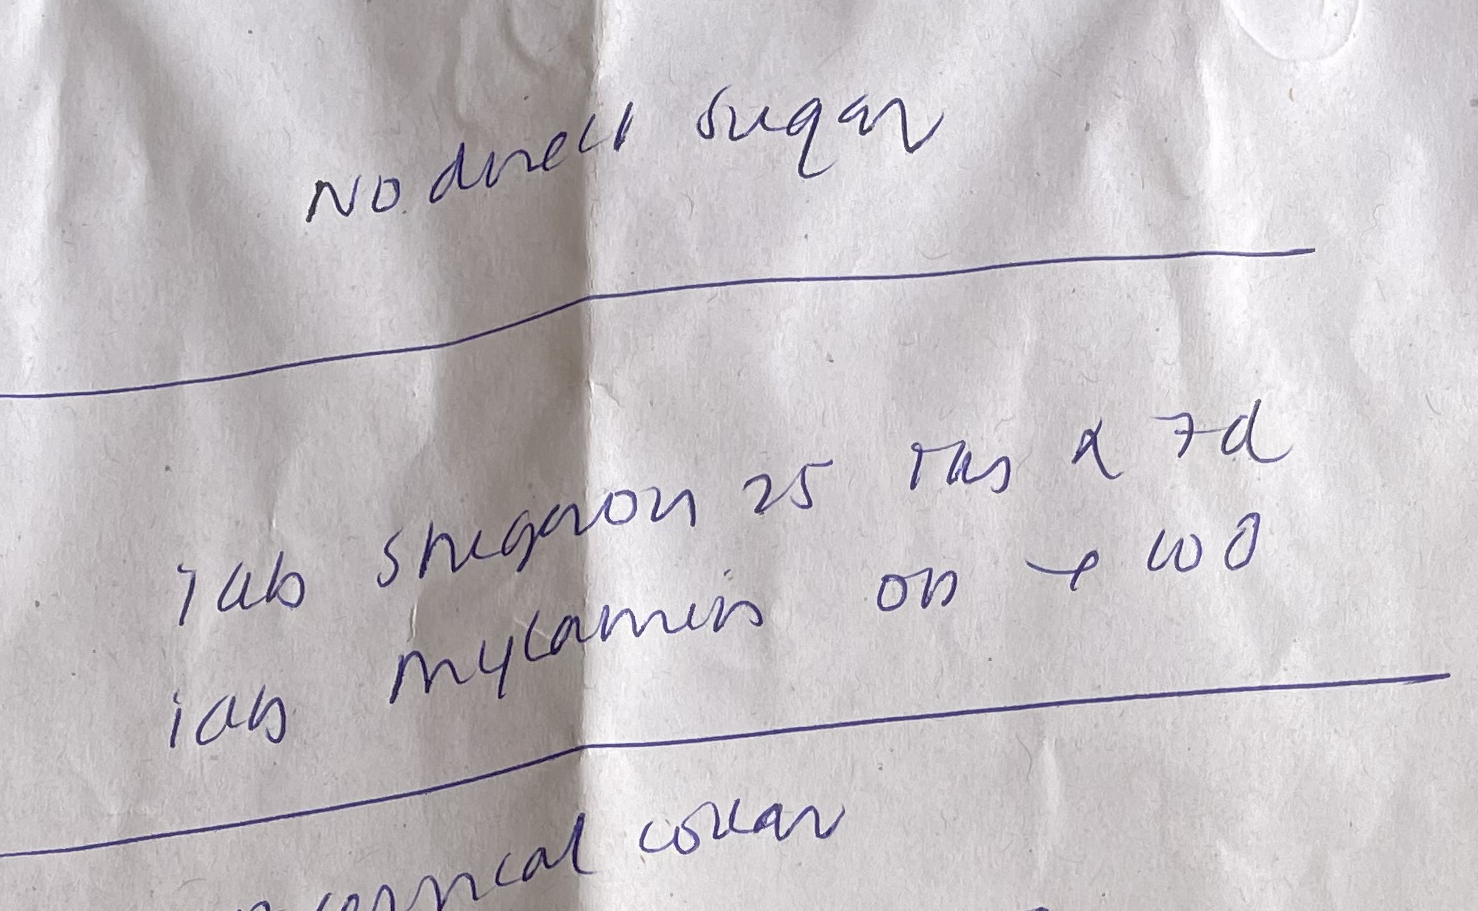 No direct sugar
Tab Stugeron 25 TDS x 7d
Tab mylamin OD
cervical collar